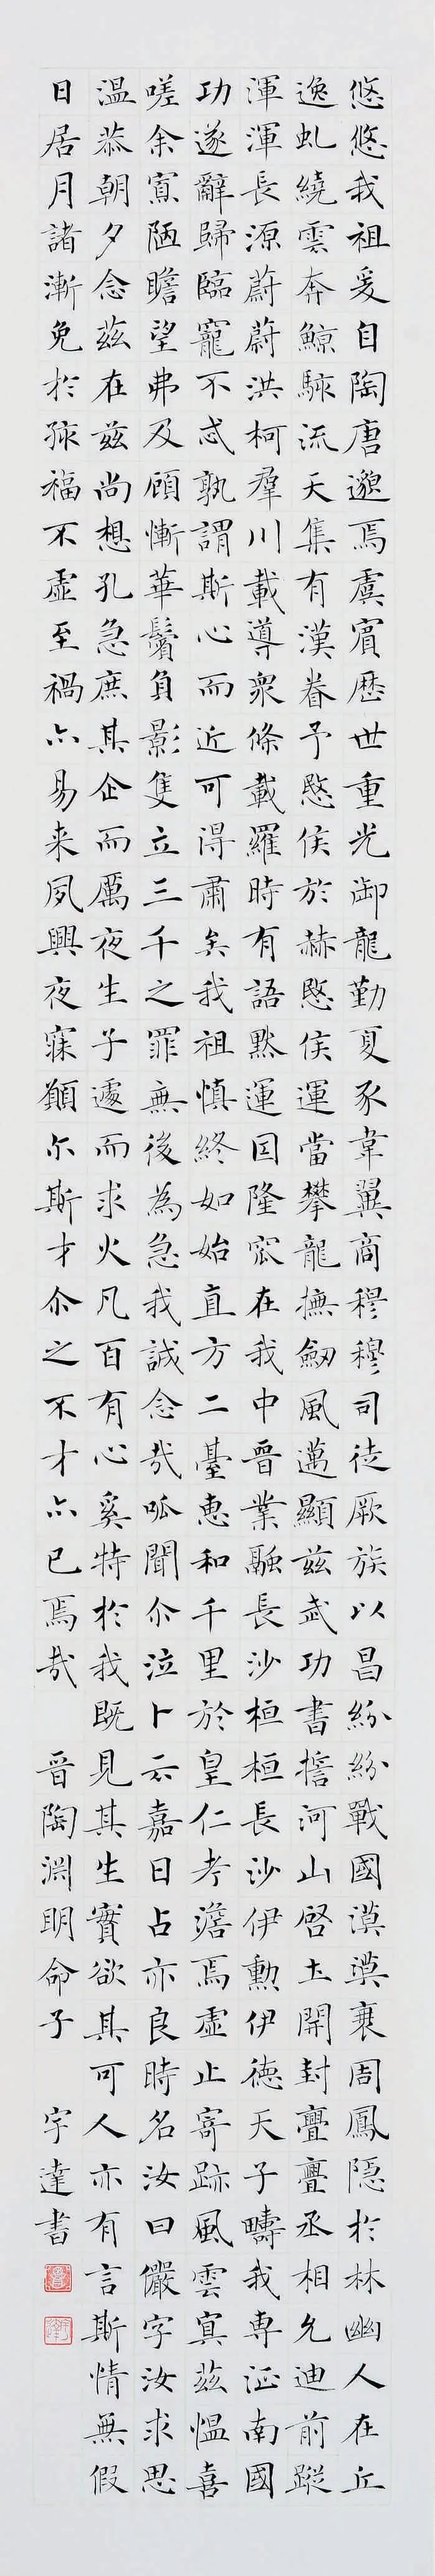 悠悠我祖爰自陶唐邈焉虞賓歷世重光御龍勤夏豕韋翼商穆穆司徒厥族以昌紛紛戰國漠漠衰周鳳隱於林幽人在丘
逸虬繞雲奔鯨駭流天集有漢眷予愍侯於赫愍侯運當攀龍撫劒風邁顯茲武功書誓河山啓土開封亹亹丞相允迪前蹤
渾渾長源蔚蔚洪柯羣川載導衆條載羅時有語默運因隆窊在我中晉業融長沙桓桓長沙伊勳伊德天子疇我專征南國
功遂辭歸臨寵不忒孰謂斯心而近可得肅矣我祖慎終如始直方二臺惠和千里於皇仁考澹焉虛止寄跡風雲寘茲慍喜
嗟余寡陋瞻望弗及顧慚華鬢負影隻立三千之罪無後為急我誠念哉呱聞尒泣卜云嘉日占亦良時名汝曰儼字汝求思
温恭朝夕念茲在茲尚想孔急庶其企而厲夜生子遽而求火凡百有心奚特於我既見其生實欲其可人亦有言斯情無假
日居月諸漸免於孩福不虛至禍亦易来夙興夜寐願尔斯才尒之不才亦已焉哉 晉陶淵明命子 宇達書